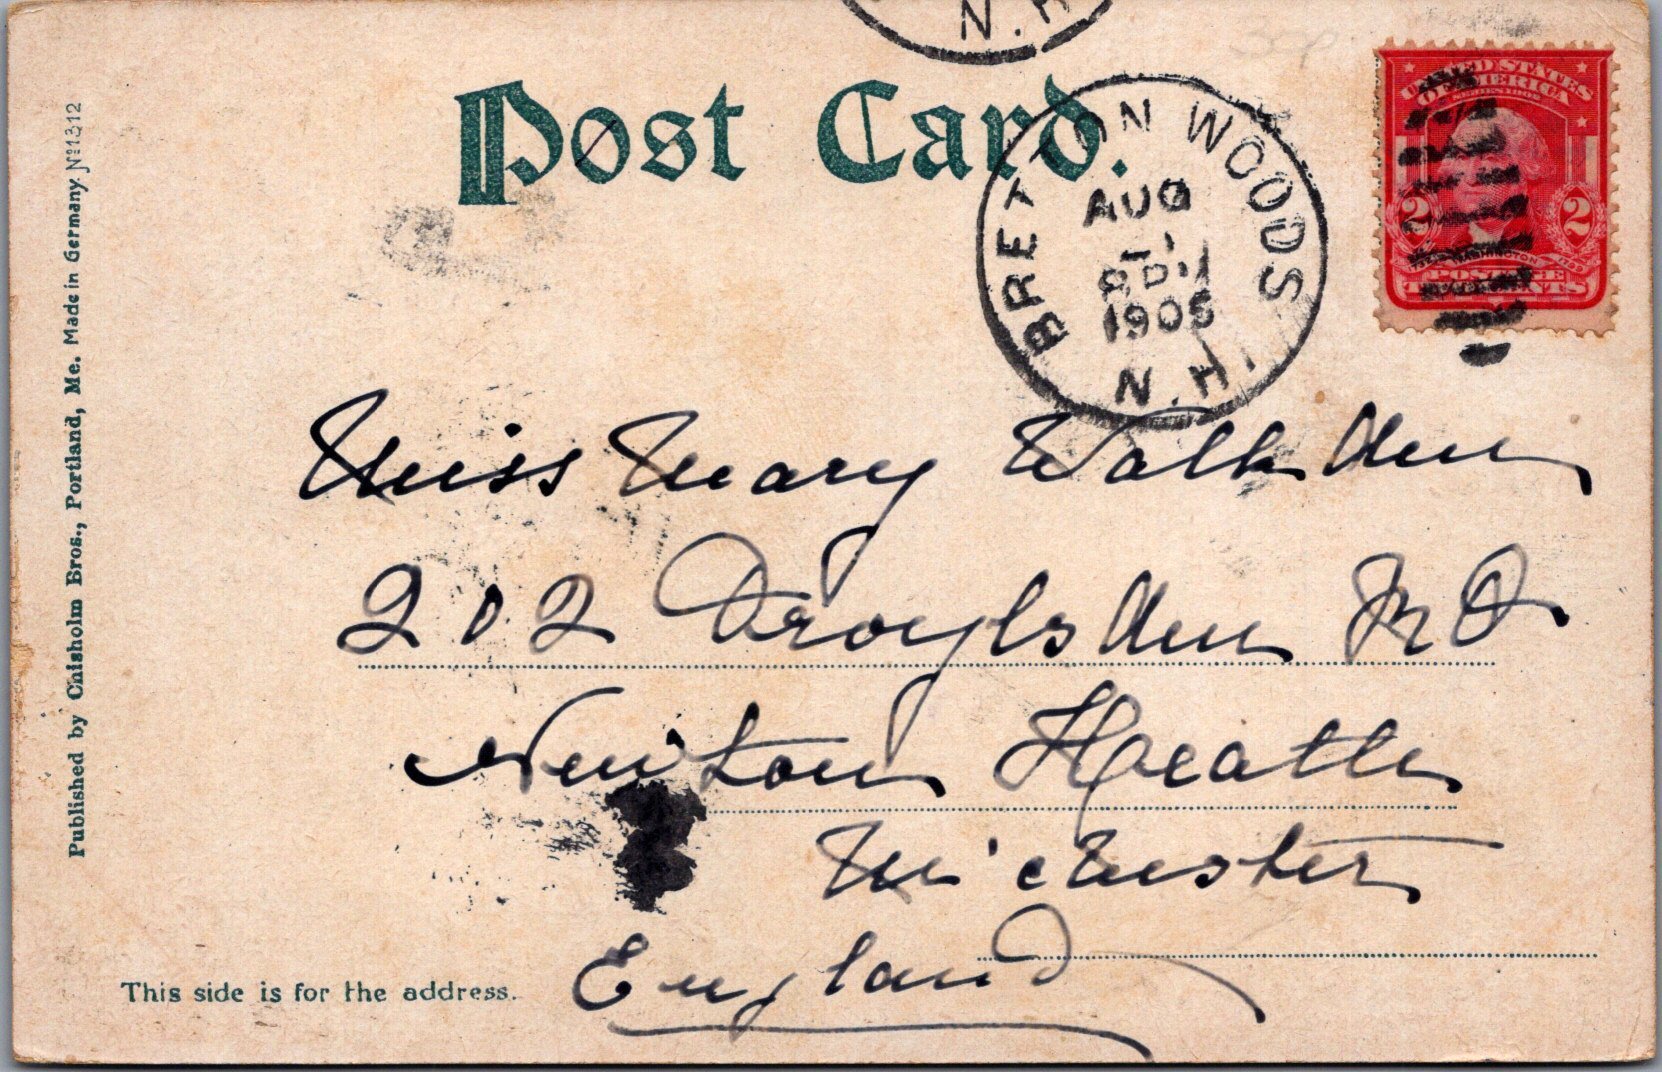 N.H.
Post Card.
BRETTON WOODS
AUG
1
1905
N.H.
UNITED STATES
OF AMERICA
SERIES 1902
2 2
WASHINGTON 1799
POSTAGE
TWO CENTS
Miss Mary Walkden
202 Droylsden RD
Newton Heath
M'chester
England
This side is for the address.
Published by Chisholm Bros., Portland, Me. Made in Germany. No 1312